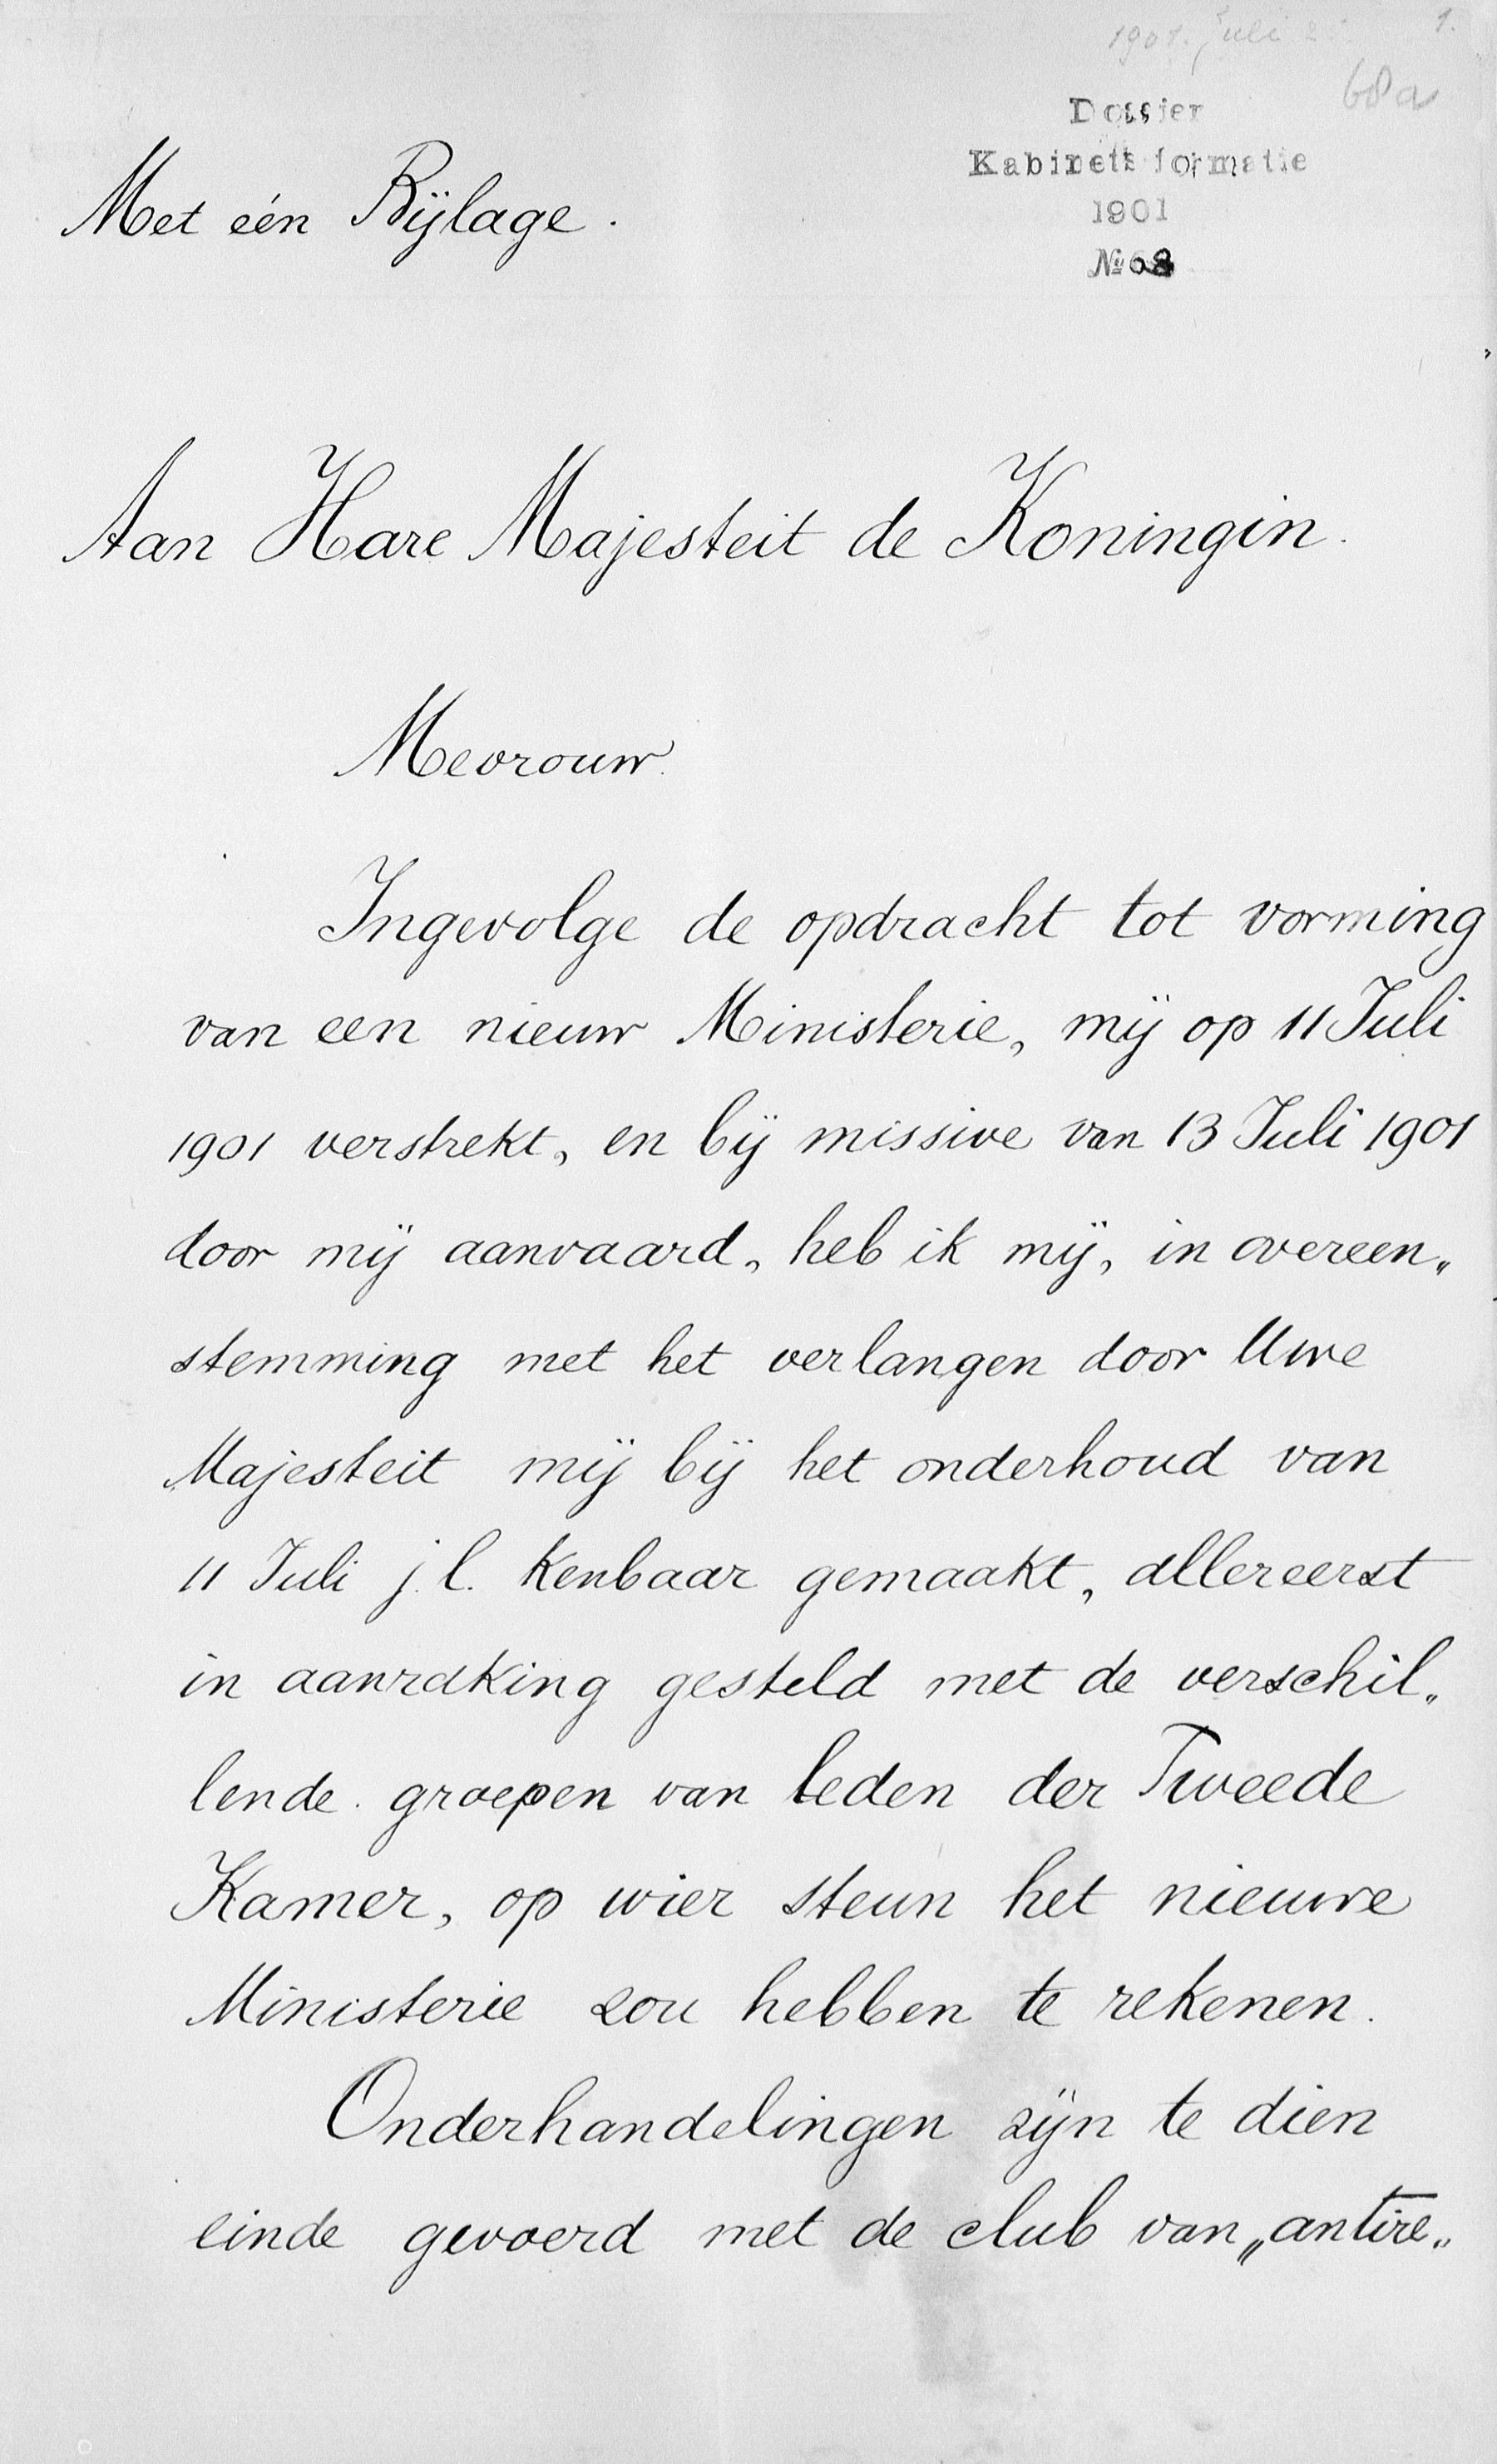 1901. Juli
1.
68a
Dossier
Kabinetsformatie
1901
№ 68
Met één Bijlage.
Aan Hare Majesteit de Koningin.
Mevrouw.
Ingevolge de opdracht tot vorming
van een nieuw Ministerie, mij op 11 Juli
1901 verstrekt, en bij missive van 13 Juli 1901
door mij aanvaard, heb ik mij, in overeen„
stemming met het verlangen door Uwe
Majesteit mij bij het onderhoud van
11 Juli j.l. kenbaar gemaakt, allereerst
in aanraking gesteld met de verschil„
lende groepen van leden der Tweede
Kamer, op wier steun het nieuwe
Ministerie zou hebben te rekenen.
Onderhandelingen zijn te dien
einde gevoerd met de club van „antire„